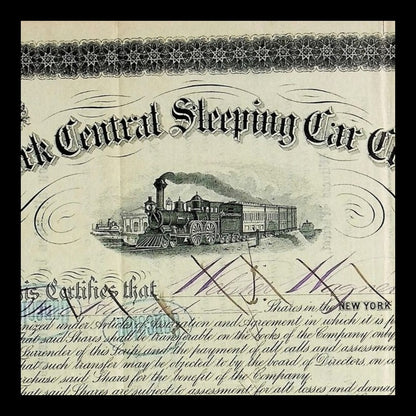 rk Central Sleeping Car C
is Certifies that
Shares in the NEW YORK
nized under Articles of Association and Agreement in which it is p
that said Shares shall be transferable on the Books of the Company only
Surrender of this Scrip and the payment of all calls and assessmen
at such transfer may be objected to by the board of Directors on co
rchase said Shares for the benefit of the Company.
at said Shares are subject to assessment for all losses and damag